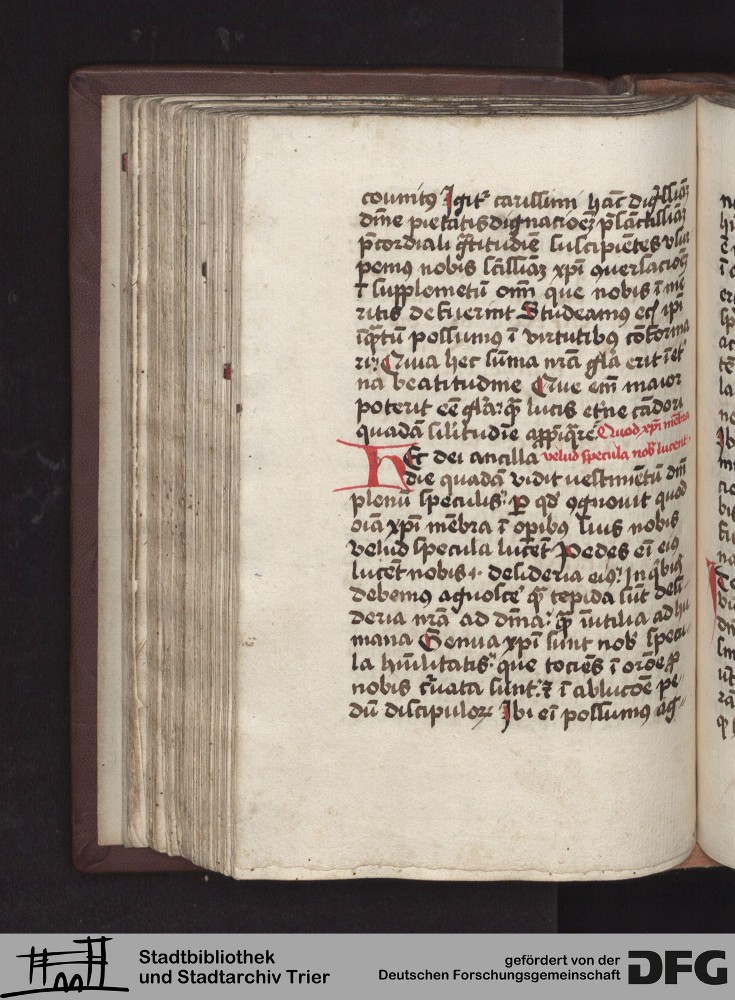 counitꝰ Igit᷑ carissimi hāc dignissiāȝ
dīne pietatis dignacōeȝ
p̄cordiali gͣtitudīe suscipiētes
pemus nobis sc̄issiāȝ xp̄i ꝯuersacōeȝ
ī supplemētū om̄i que nobis ī me
ritis defuerint Studeamꝰ ec̄ ip̄i
īqͣtū possumꝰ ī virtutibꝰ cōforma
ri: Quia hec sūma nr̄a gl̄a erit ī et᷑
na beatitudine Que em̄ maior
poterit eē gl̄a: qͣ lucis et᷑ne cādori
quadā silitudīe app̄iqͣre Quod xp̄i mēbra
Ec dei ancilla velud specula nob̄ lucent
die quadā vidit vestimētū dn̄i
plenū speculis: ꝑ qd̓ ꝯgnouit quod
oīa xp̄i mēbra ī opībꝰ suis nobis
velud specula lucēt Pedes em̄ eiꝰ
lucēt nobis .i. desideria eiꝰ: In qͥbꝰ
debemꝰ agnosce᷑ qͣ tepida sūt desi
deria nr̄a ad diuīa: qͣ īutilia ad hu
mana Genua xp̄i sunt nob̄ specu
la hūilitatis: que tociēs ī orōe ꝑ
nobis cͥuata sunt: ⁊ ī ablucōe pe
dū discipuloꝝ Ibi em̄ possumꝰ ag
Stadtbibliothek
und Stadtarchiv Trier
gefördert von der
Deutschen Forschungsgemeinschaft
DFG